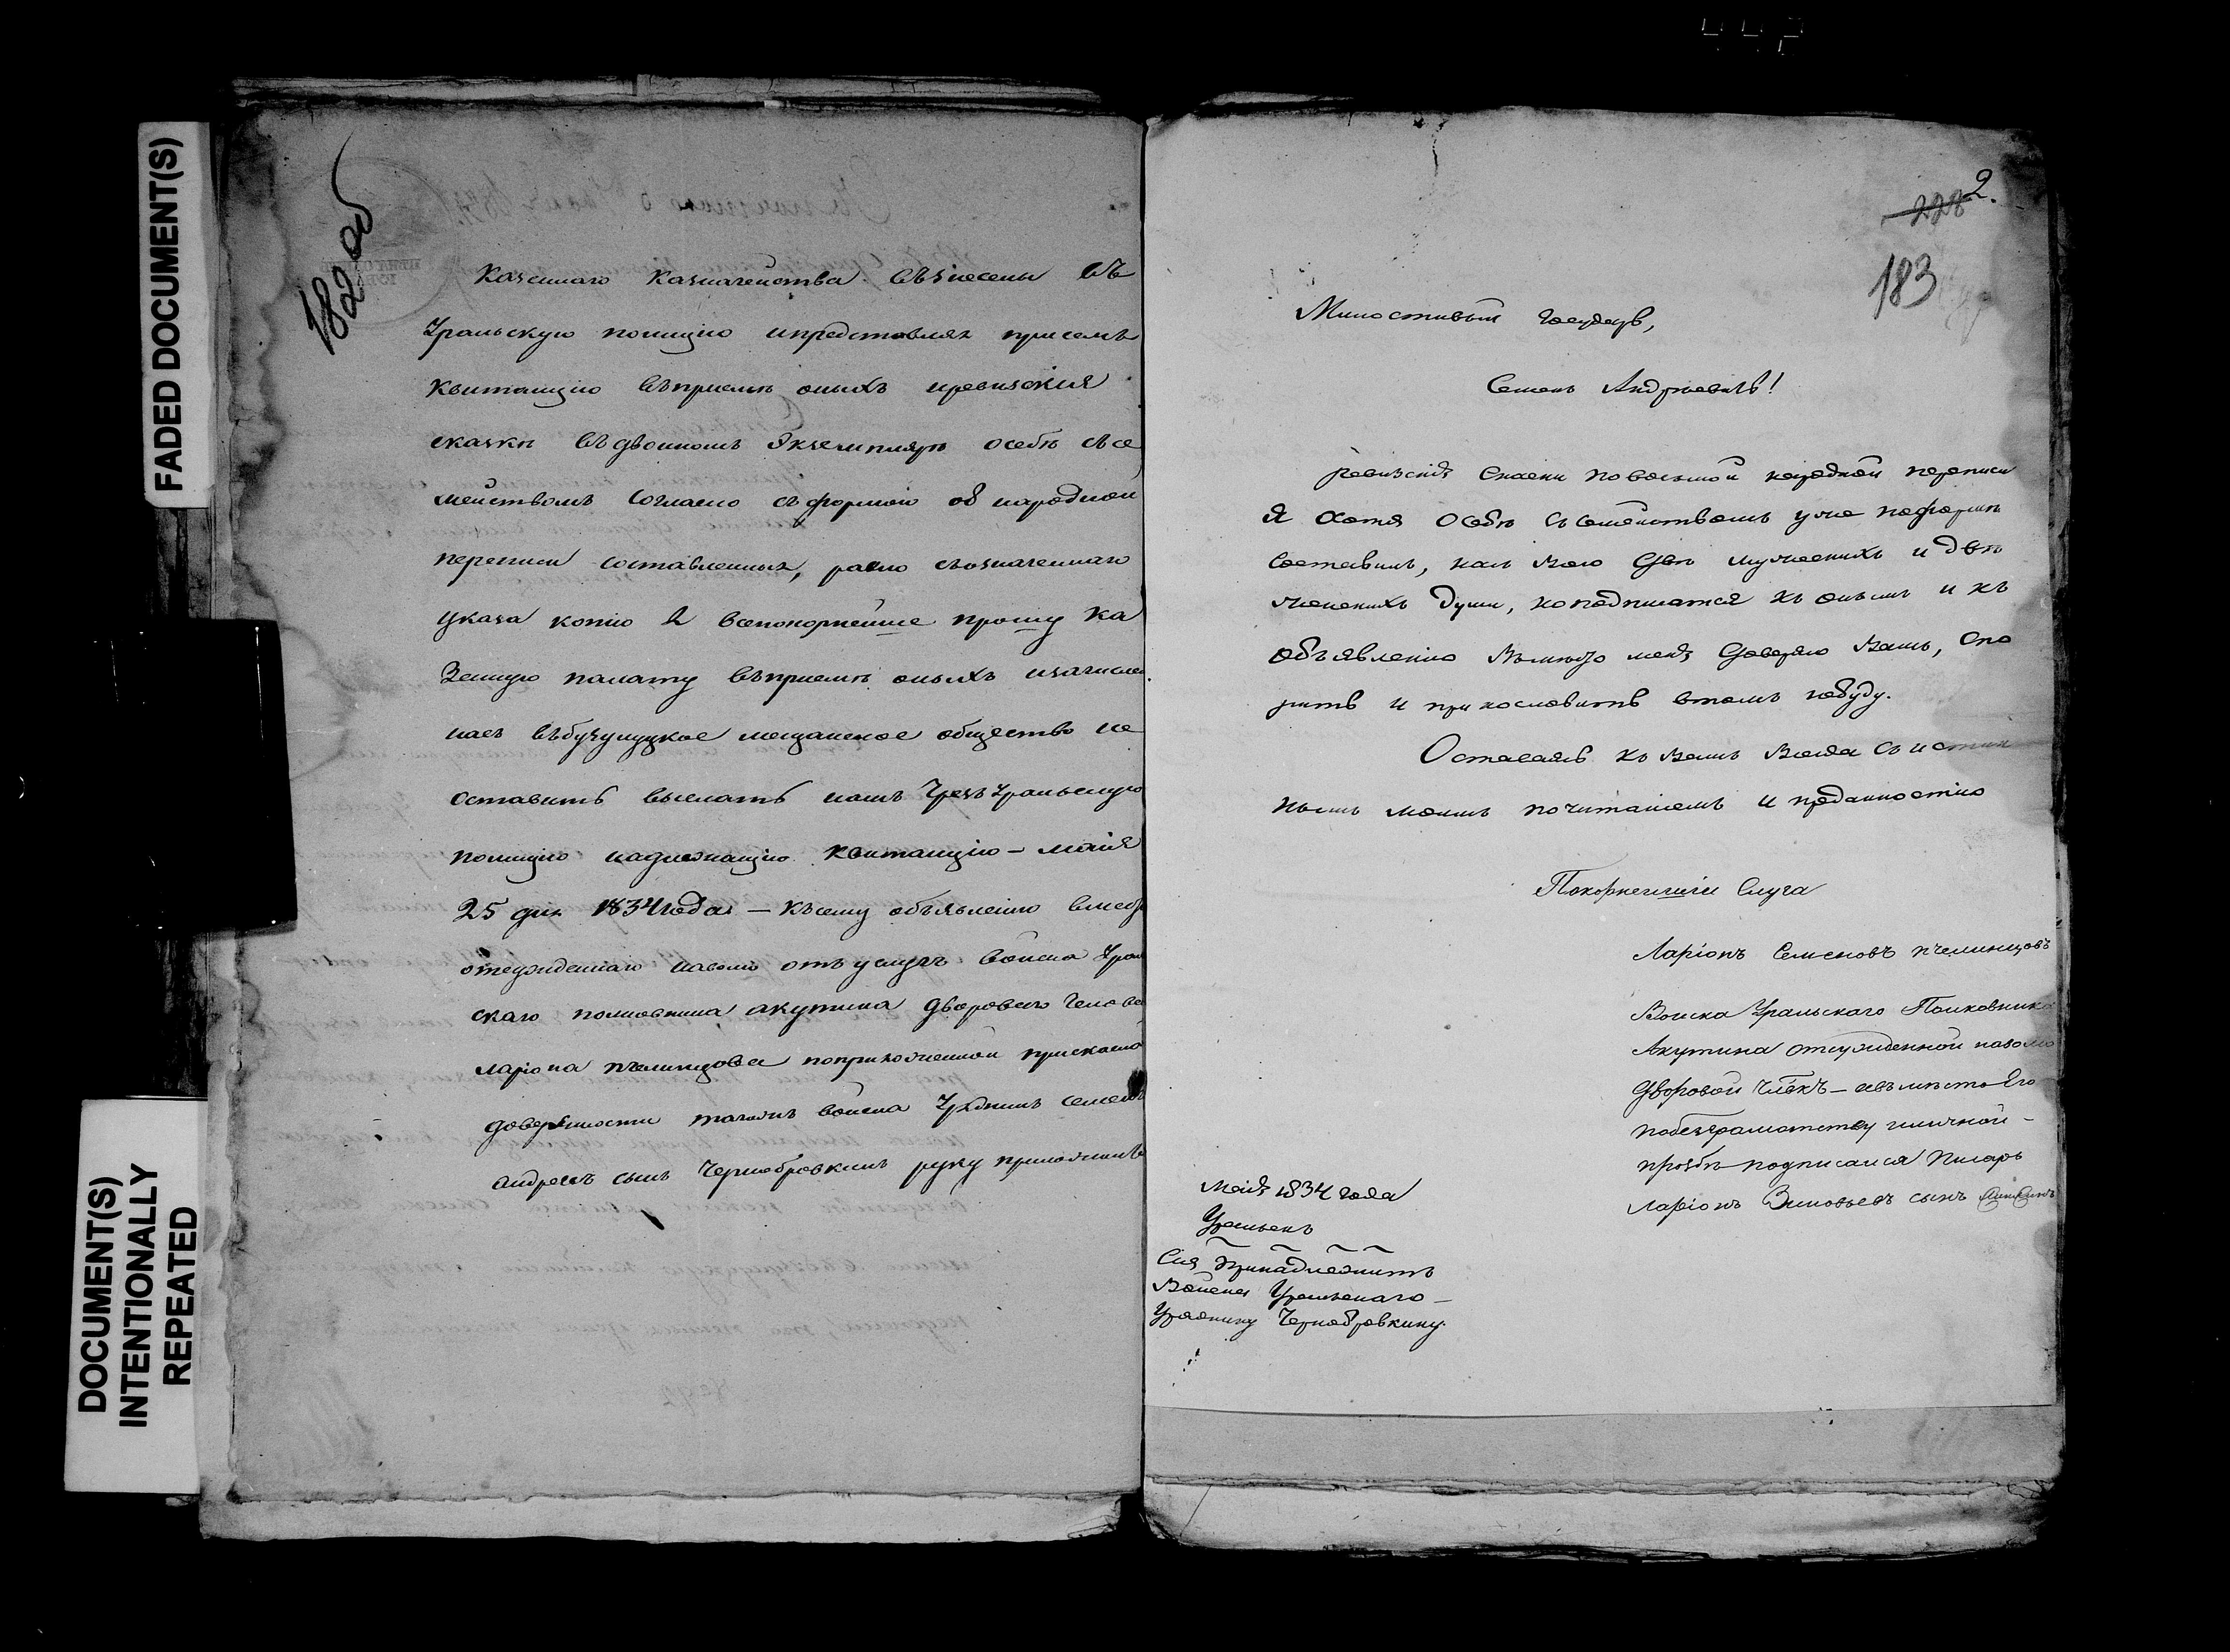 FADED DOCUMENT(S)
DOCUMENT(S)
INTENTIONALLY
REPEATED
182 об
Казеннаго Казначейства взнесены въ
Уральскую полицию ипредставляя присемъ
квитанцию въприемѣ оныхъ иревизския
скаски въдвойномъ Экземплярѣ особѣ сѣсе
мействомъ согласно съформою об народной
переписи составленныя, равно съозначеннаго
указа копию всепокорнейше прошу Ка
зенную палату въприемѣ оныхъ изачислен.
насъ въбузулуцкое мещанское общество не
оставить выслать намъ Чрезъ Уральскую
полицию надлежащую Квитанцию – маия
25 дня 1834 года – Ксему объявлению вмест
отсужденнаго наволю отъ услугъ войска Урал
скаго полковника акутина двороваго Челове
лариона пчелинцова поприложенной присемъ
доверенности тагожъ войска Урядникъ семенъ
андреевъ сынъ Чернобровкинъ руку приложилъ
2.
228
183
Милостивый Государь,
Семенъ Андреевичъ!
Ревизския Скаски повосьмой народной переписи
Я Хотя Особѣ Съсемействомъ уже поформѣ
Составилъ, нашъ Вою Двѣ мужескихъ и двѣ
женскихъ души, ноподписатся къ онымъ и къ
Объявлению Вместо меня Доверяю Вамъ, Спо
рить и прикословить втомъ небуду.
Остаюсь къ Вамъ Всегда Съ истин
нымъ моимъ почитаниемъ и преданностию
Покорнейший Слуга
Ларіонъ Семеновъ пчелинцовъ
Войска Уральскаго Полковника
Акутина отсужденной наволю
Дворовой члѣкъ – авъместо Его
побезграмотству иличной –
прозбѣ подписался Писарь
Ларіонъ Зиновьевъ сынъ
Маия 1834 года
Уральскъ
Сия принадлежитъ
Войска Уральскаго –
Уряднику Чернобровкину.